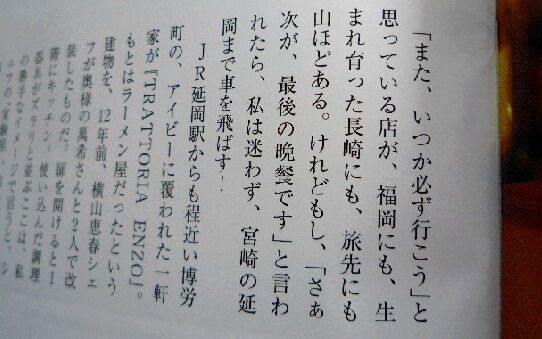 「また、いつか必ず行こう」と
思っている店が、福岡にも、生
まれ育った長崎にも、旅先にも
山ほどある。けれどもし、「さぁ
次が、最後の晩餐です」と言わ
れたら、私は迷わず、宮崎の延
岡まで車を飛ばす!
JR延岡駅からも程近い博労
町の、アイビーに覆われた一軒
家が『TRATTORIA ENZO』。
もとはラーメン屋だったという
建物を、12年前、横山恵春シェ
フが奥様の萬希さんと2人で改
装したものだ。扉を開けると1
階にキッチン。使い込んだ調理
器具がズラリと並ぶここは、私
の勝手なイメージで言うと、シ